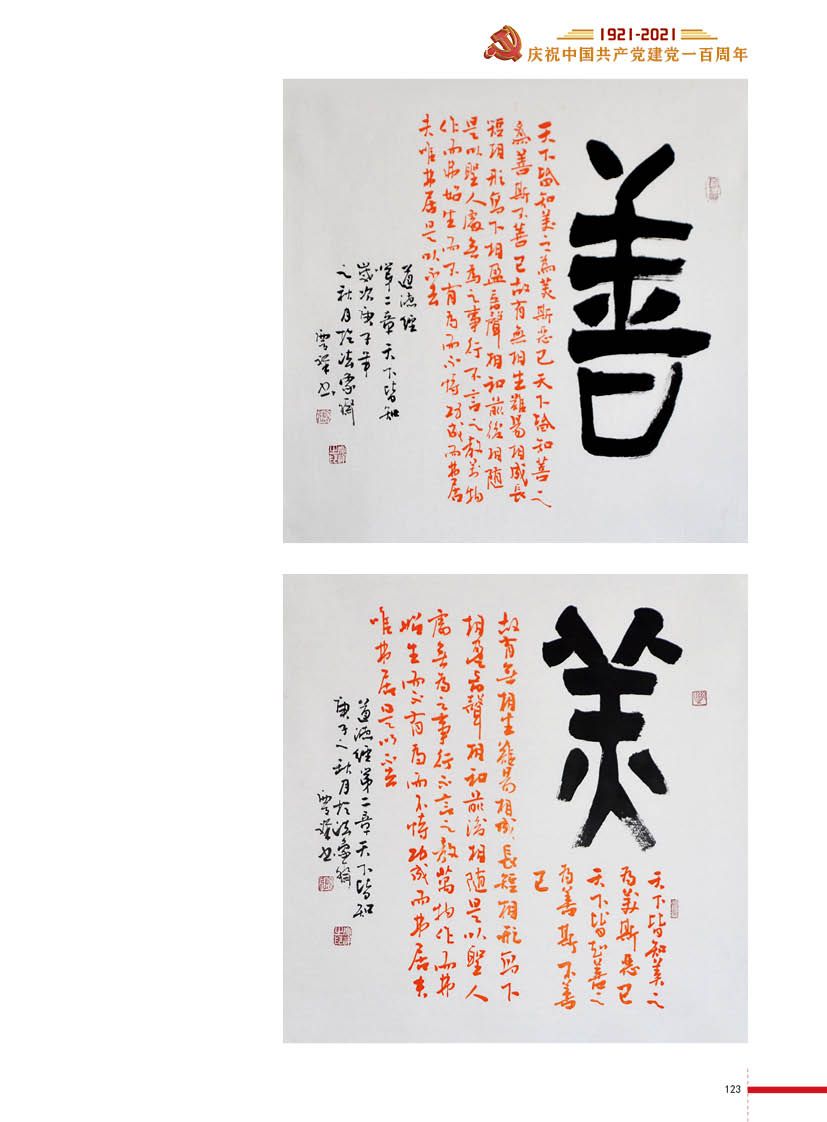 1921-2021
庆祝中国共产党建党一百周年
善
天下皆知美之為美斯惡已天下皆知善之
為善斯不善已故有無相生難易相成長
短相形高下相盈音聲相和前後相随
是以聖人處無為之事行不言之教萬物
作而弗始生而不有為而不恃功成而弗居
夫唯弗居是以不去
道德經
第二章天下皆知
歲次庚子年
之秋月於法家齋
雲 書
美
天下皆知美之
為美斯惡已
天下皆知善之
為善斯不善
已
故有無相生難易相成長短相形高下
相盈音聲相和前後相随是以聖人
處無為之事行不言之教萬物作而弗
始生而不有為而不恃功成而弗居夫
唯弗居是以不去
道德經第二章天下皆知
庚子之秋月於法 齋
雲 書
123